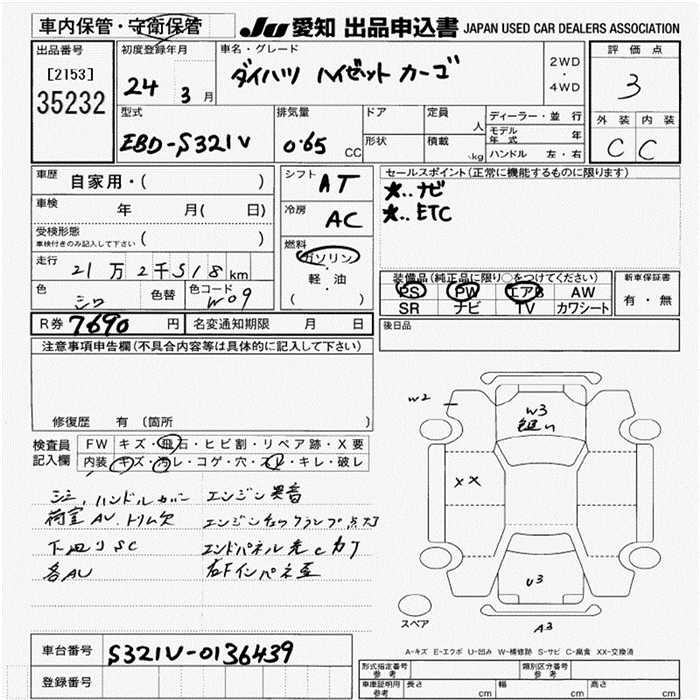 車内保管・守衛保管
JU 愛知 出品申込書 JAPAN USED CAR DEALERS ASSOCIATION
出品番号
[2153]
35232
初度登録年月
24 3 月
車名・グレード
ダイハツ ハイゼット カーゴ
2WD
・
4WD
評価点
3
外装 内装
C C
型式
EBD-S321V
排気量
0.65 CC
ドア
形状
定員 人
積載 kg
ディーラー・並行
モデル年式 年
ハンドル 左・右
車歴 自家用・( )
車検 年 月( 日)
受検形態
車検付きのみ記入して下さい ( )
走行 21万2千518km
色 シロ 色替 色コード W09
シフト AT
冷房 AC
燃料
ガソリン
・
軽油
( )
セールスポイント(正常に機能するものに限ります)
★..ナビ
★..ETC
装備品(純正品に限り○をつけてください)
PS PW エアB AW
SR ナビ TV カワシート
新車保証書
有・無
R券 7690 円 名変通知期限 月 日
後日品
注意事項申告欄(不具合内容等は具体的に記入して下さい)
修復歴 有 〔箇所 〕
検査員記入欄
FW キズ・飛石・ヒビ割・リペア跡・X要
内装 キズ・汚レ・コゲ・穴・スレ・キレ・破レ
ハンドルカバー エンジン異音
荷室AU.トリム欠 エンジンチェックランプ点灯
下回りSC
各AU
W2
W3
XX
U3
A3
スペア
A-キズ E-エクボ U-凹み W-補修跡 S-サビ C-腐食 XX-交換済
車台番号 S321V-0136439
登録番号
型式指定番号 参考 類別区分番号 参考
車庫証明用 参考 長さ cm 幅 cm 高さ cm